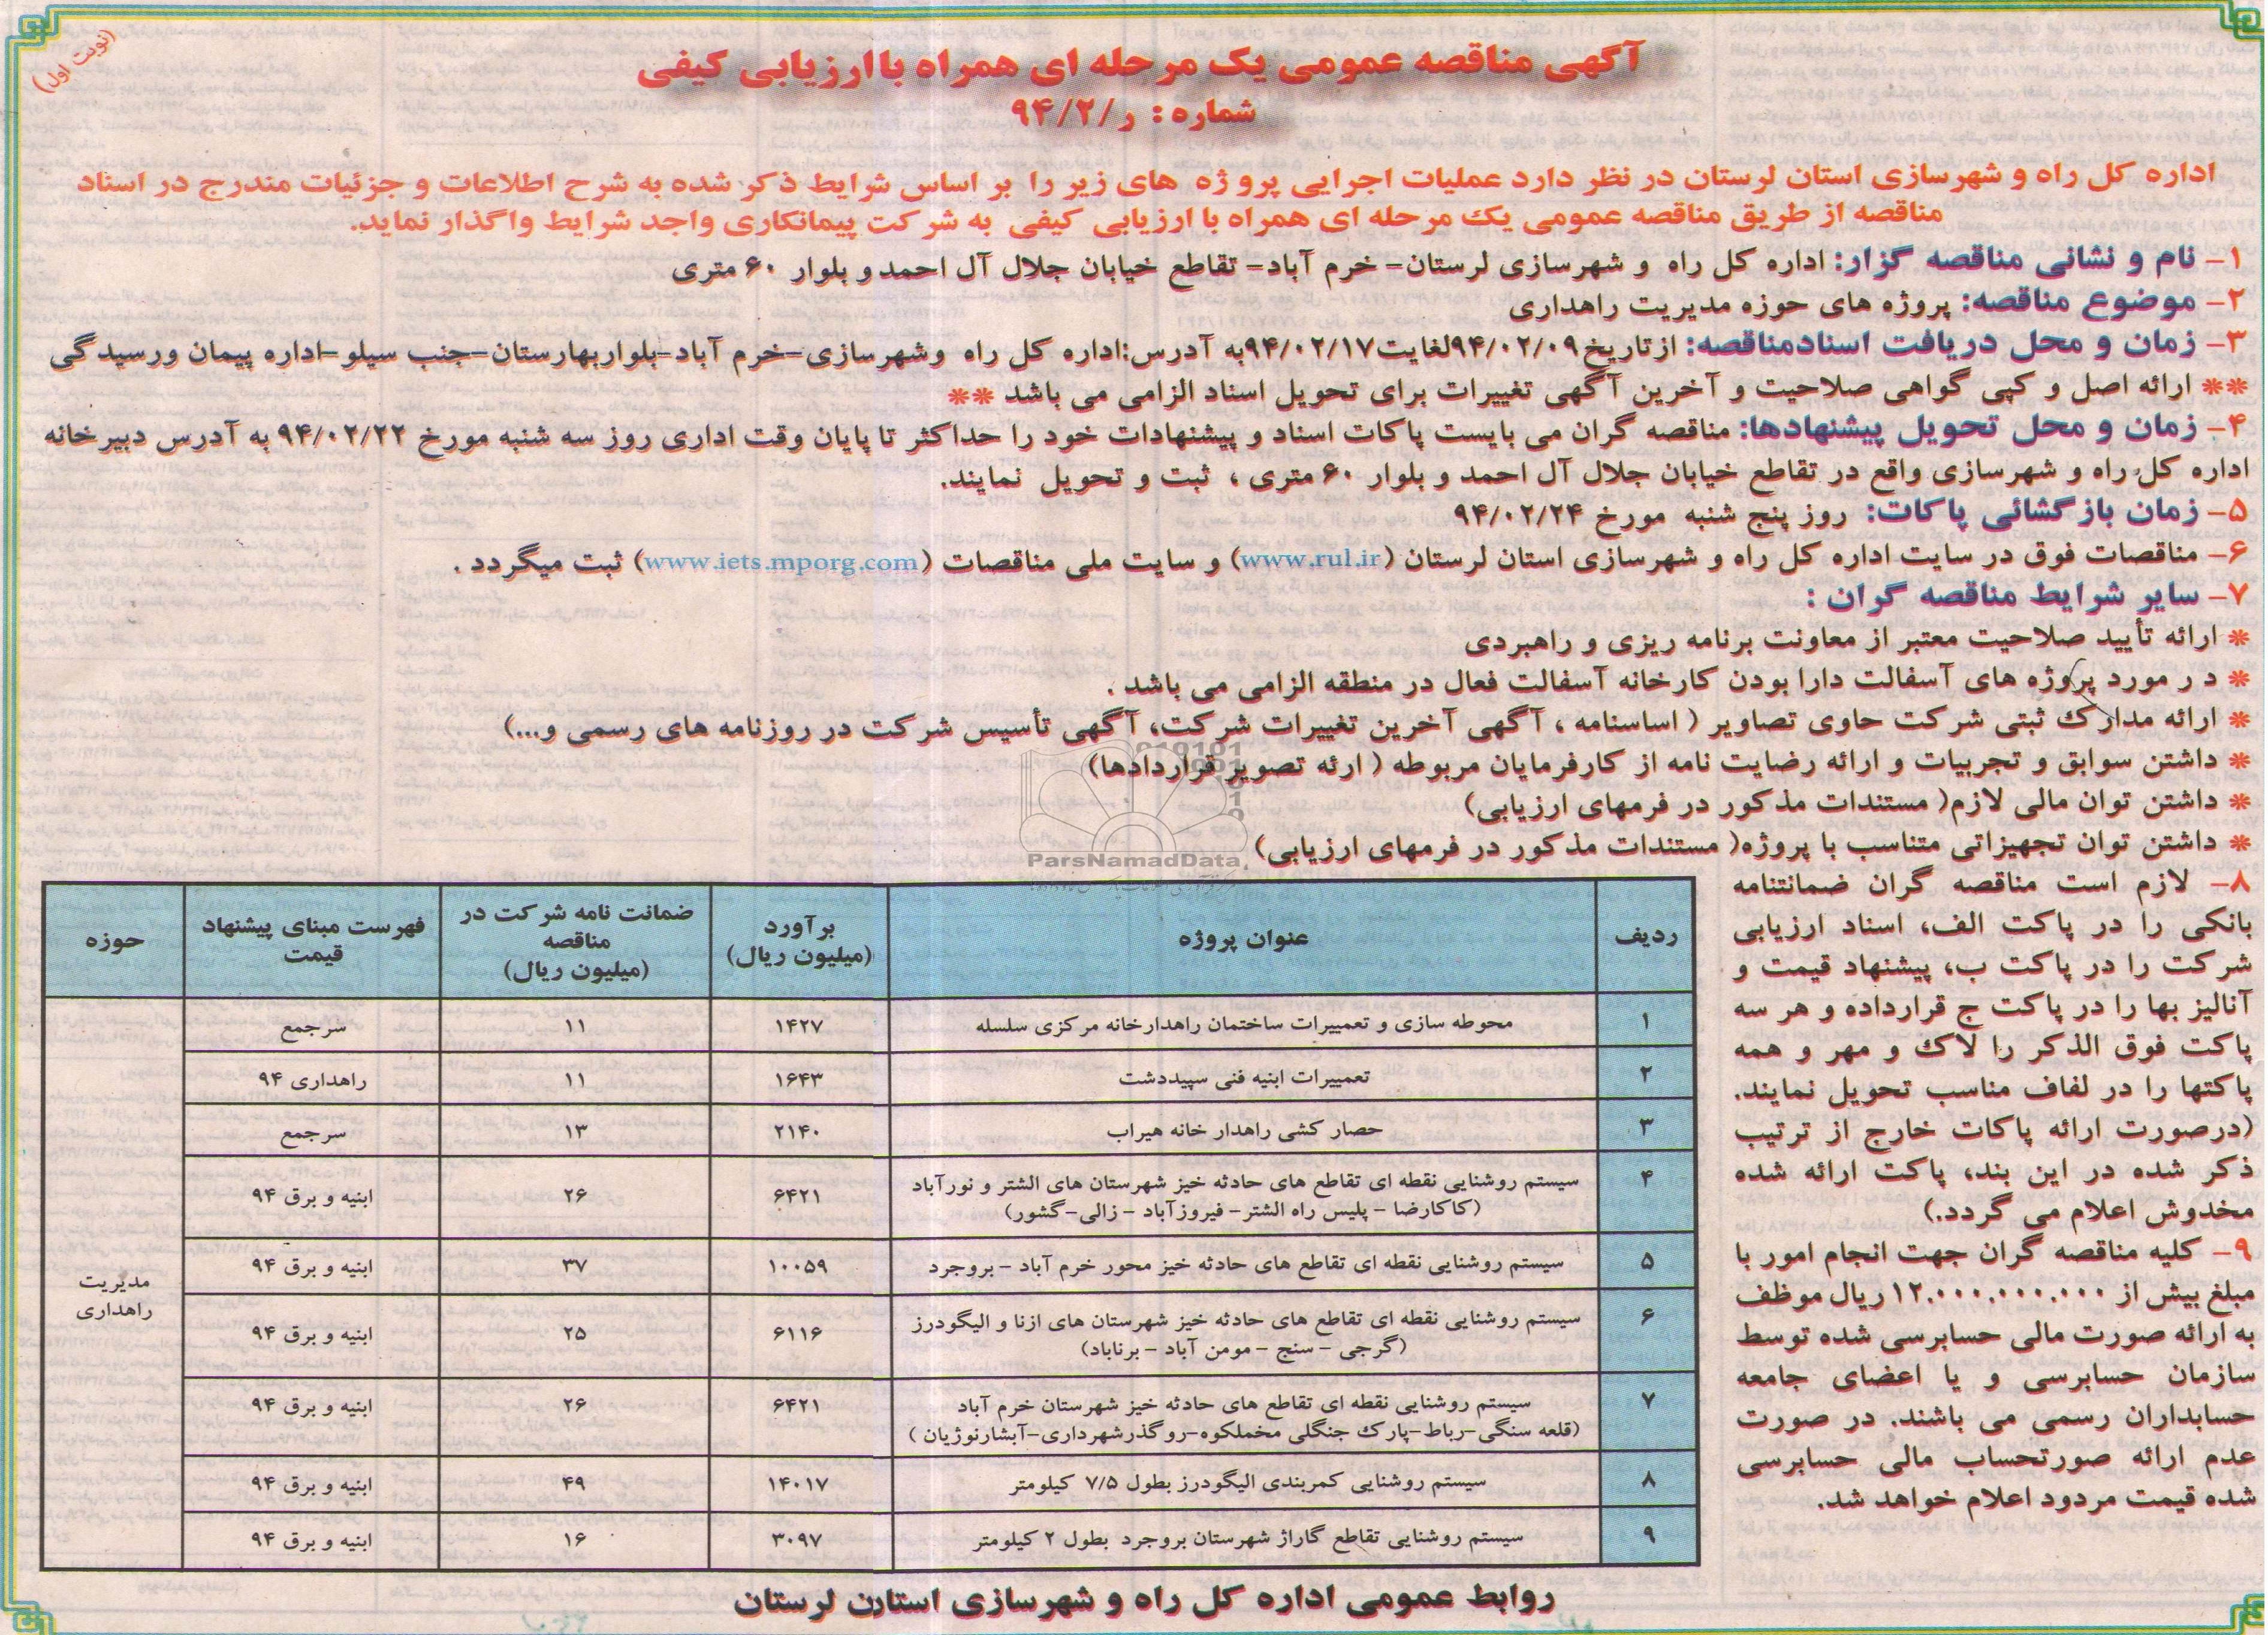 (نوبت اول)
آگهی مناقصه عمومی یک مرحله ای همراه با ارزیابی کیفی
شماره : ر/۹۴/۲
اداره کل راه و شهرسازی استان لرستان در نظر دارد عملیات اجرایی پروژه های زیر را بر اساس شرایط ذکر شده به شرح اطلاعات و جزئیات مندرج در اسناد
مناقصه از طریق مناقصه عمومی یک مرحله ای همراه با ارزیابی کیفی به شرکت پیمانکاری واجد شرایط واگذار نماید.
۱- نام و نشانی مناقصه گزار: اداره کل راه و شهرسازی لرستان- خرم آباد- تقاطع خیابان جلال آل احمد و بلوار ۶۰ متری
۲- موضوع مناقصه: پروژه های حوزه مدیریت راهداری
۳- زمان و محل دریافت اسنادمناقصه: ازتاریخ ۹۴/۰۲/۰۹لغایت۹۴/۰۲/۱۷به آدرس:اداره کل راه وشهرسازی-خرم آباد-بلواربهارستان-جنب سیلو-اداره پیمان ورسیدگی
** ارائه اصل و کپی گواهی صلاحیت و آخرین آگهی تغییرات برای تحویل اسناد الزامی می باشد **
۴- زمان و محل تحویل پیشنهادها: مناقصه گران می بایست پاکات اسناد و پیشنهادات خود را حداکثر تا پایان وقت اداری روز سه شنبه مورخ ۹۴/۰۲/۲۲ به آدرس دبیرخانه
اداره کل راه و شهرسازی واقع در تقاطع خیابان جلال آل احمد و بلوار ۶۰ متری ، ثبت و تحویل نمایند.
۵- زمان بازگشائی پاکات: روز پنج شنبه مورخ ۹۴/۰۲/۲۴
۶- مناقصات فوق در سایت اداره کل راه و شهرسازی استان لرستان (www.rul.ir) و سایت ملی مناقصات (www.iets.mporg.com) ثبت میگردد .
۷- سایر شرایط مناقصه گران :
* ارائه تأیید صلاحیت معتبر از معاونت برنامه ریزی و راهبردی
* د ر مورد پروژه های آسفالت دارا بودن کارخانه آسفالت فعال در منطقه الزامی می باشد .
* ارائه مدارک ثبتی شرکت حاوی تصاویر ( اساسنامه ، آگهی آخرین تغییرات شرکت، آگهی تأسیس شرکت در روزنامه های رسمی و...)
* داشتن سوابق و تجربیات و ارائه رضایت نامه از کارفرمایان مربوطه ( ارئه تصویر قراردادها)
* داشتن توان مالی لازم( مستندات مذکور در فرمهای ارزیابی)
* داشتن توان تجهیزاتی متناسب با پروژه( مستندات مذکور در فرمهای ارزیابی)
ParsNamadData
۸- لازم است مناقصه گران ضمانتنامه
بانکی را در پاکت الف، اسناد ارزیابی
شرکت را در پاکت ب، پیشنهاد قیمت و
آنالیز بها را در پاکت ج قرارداده و هر سه
پاکت فوق الذکر را لاک و مهر و همه
پاکتها را در لفاف مناسب تحویل نمایند.
(درصورت ارائه پاکات خارج از ترتیب
ذکر شده در این بند، پاکت ارائه شده
مخدوش اعلام می گردد.)
۹- کلیه مناقصه گران جهت انجام امور با
مبلغ بیش از ۱۲،۰۰۰،۰۰۰،۰۰۰ ریال موظف
به ارائه صورت مالی حسابرسی شده توسط
سازمان حسابرسی و یا اعضای جامعه
حسابداران رسمی می باشند. در صورت
عدم ارائه صورتحساب مالی حسابرسی
شده قیمت مردود اعلام خواهد شد.
ردیف | عنوان پروژه | برآورد (میلیون ریال) | ضمانت نامه شرکت در مناقصه (میلیون ریال) | فهرست مبنای پیشنهاد قیمت | حوزه
۱ | محوطه سازی و تعمییرات ساختمان راهدارخانه مرکزی سلسله | ۱۴۲۷ | ۱۱ | سرجمع
۲ | تعمییرات ابنیه فنی سپیددشت | ۱۶۴۳ | ۱۱ | راهداری ۹۴
۳ | حصار کشی راهدار خانه هیراب | ۲۱۴۰ | ۱۳ | سرجمع
۴ | سیستم روشنایی نقطه ای تقاطع های حادثه خیز شهرستان های الشتر و نورآباد (کاکارضا - پلیس راه الشتر- فیروزآباد - زالی-گشور) | ۶۴۲۱ | ۲۶ | ابنیه و برق ۹۴
۵ | سیستم روشنایی نقطه ای تقاطع های حادثه خیز محور خرم آباد - بروجرد | ۱۰۰۵۹ | ۳۷ | ابنیه و برق ۹۴
مدیریت راهداری
۶ | سیستم روشنایی نقطه ای تقاطع های حادثه خیز شهرستان های ازنا و الیگودرز (گرجی - سنج - مومن آباد - برناباد) | ۶۱۱۶ | ۲۵ | ابنیه و برق ۹۴
۷ | سیستم روشنایی نقطه ای تقاطع های حادثه خیز شهرستان خرم آباد (قلعه سنگی-رباط-پارک جنگلی مخملکوه-روگذرشهرداری-آبشارنوژیان ) | ۶۴۲۱ | ۲۶ | ابنیه و برق ۹۴
۸ | سیستم روشنایی کمربندی الیگودرز بطول ۷/۵ کیلومتر | ۱۴۰۱۷ | ۴۹ | ابنیه و برق ۹۴
۹ | سیستم روشنایی تقاطع گاراژ شهرستان بروجرد بطول ۲ کیلومتر | ۳۰۹۷ | ۱۶ | ابنیه و برق ۹۴
روابط عمومی اداره کل راه و شهرسازی استارن لرستان